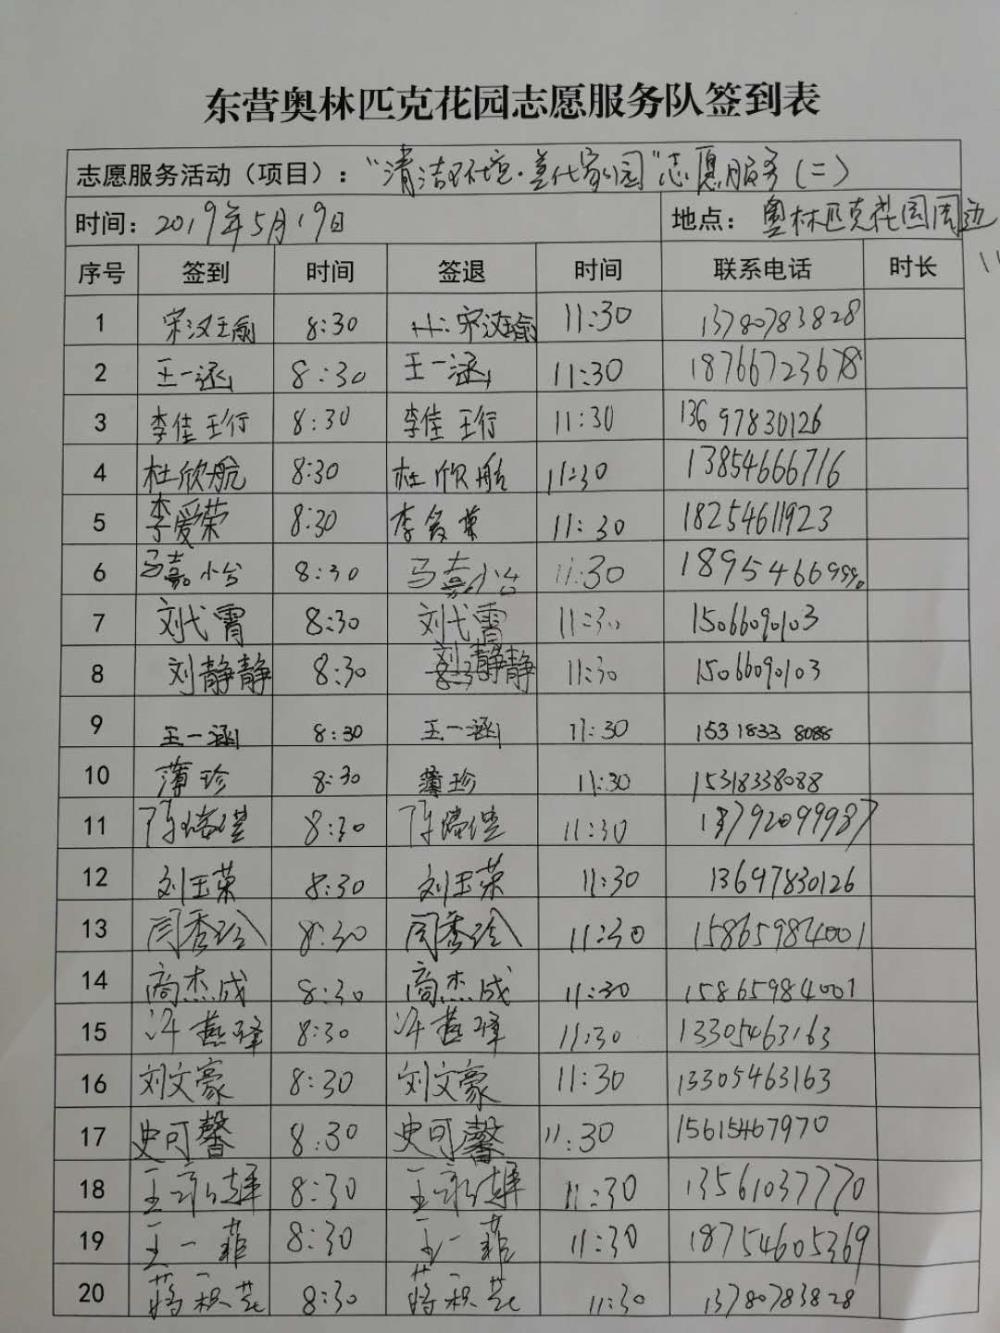 东营奥林匹克花园志愿服务队签到表
志愿服务活动（项目）：“清洁环境·美化家园”志愿服务（二）
时间：2019年5月19日 地点：奥林匹克花园周边
序号 签到 时间 签退 时间 联系电话 时长
1 宋汶瑜 8:30 宋汶瑜 11:30 13780783828
2 王一涵 8:30 王一涵 11:30 18766723678
3 李佳珩 8:30 李佳珩 11:30 13697830126
4 杜欣航 8:30 杜欣航 11:30 13854666716
5 李爱荣 8:30 李爱荣 11:30 18254611923
6 马嘉怡 8:30 马嘉怡 11:30
7 刘代霄 8:30 刘代霄 11:30 15066090103
8 刘静静 8:30 刘静静 11:30 15066090103
9 王一涵 8:30 王一涵 11:30 15318338088
10 薄珍 8:30 薄珍 11:30 15318338088
11 8:30 11:30 13792099987
12 刘玉荣 8:30 刘玉荣 11:30 13697830126
13 闫秀玲 8:30 闫秀玲 11:30 15865984001
14 商杰成 8:30 商杰成 11:30 15865984001
15 8:30 11:30 13305463163
16 刘文豪 8:30 刘文豪 11:30 13305463163
17 史可馨 8:30 史可馨 11:30 15615467970
18 8:30 11:30 13561037770
19 王一菲 8:30 王一菲 11:30 18754605369
20 8:30 11:30 13780783828